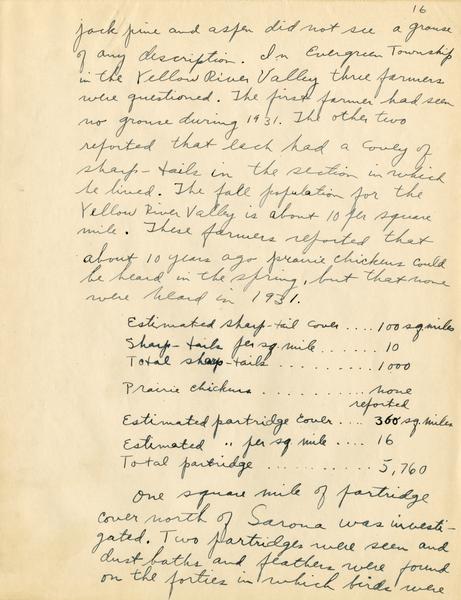 16
jack pine and aspen did not see a grouse
of any description. In Evergreen Township
in the Yellow River Valley three farmers
were questioned. The first farmer had seen
no grouse during 1931. The other two
reported that each had a covey of
sharp-tails in the section in which
he lived. The fall population for the
Yellow River Valley is about 10 per square
mile. These farmers reported that
about 10 years ago prairie chickens could
be heard in the spring, but that none
were heard in 1931.
Estimated sharp-tail cover .... 100 sq miles
Sharp-tails per sq. mile ....... 10
Total sharp-tails ........ 1000
Prairie chickens .......... none
reported
Estimated partridge cover .... 360 sq. miles
Estimated " per sq mile .... 16
Total partridge ........... 5,760
One square mile of partridge
cover north of Sarona was investi-
gated. Two partridges were seen and
dust baths and feathers were found
on the forties in which birds were